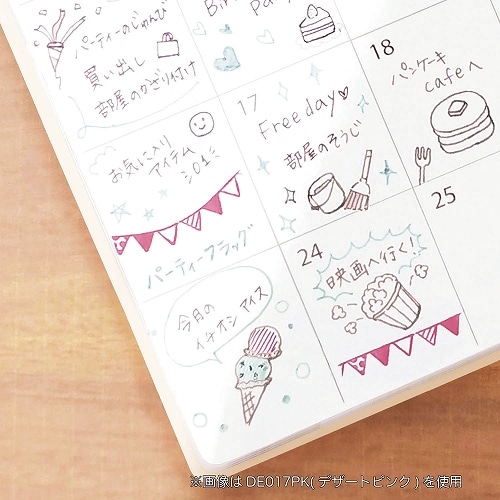 パーティーのじゅんび
買い出し
部屋のかざり付け
17
Free day♡
部屋のそうじ
18
パンケーキ
cafeへ
お気に入り
アイテム
01
パーティーフラッグ
24
映画へ行く!
25
今月の
イチオシ アイス
※画像は DE017PK( デザートピンク ) を使用